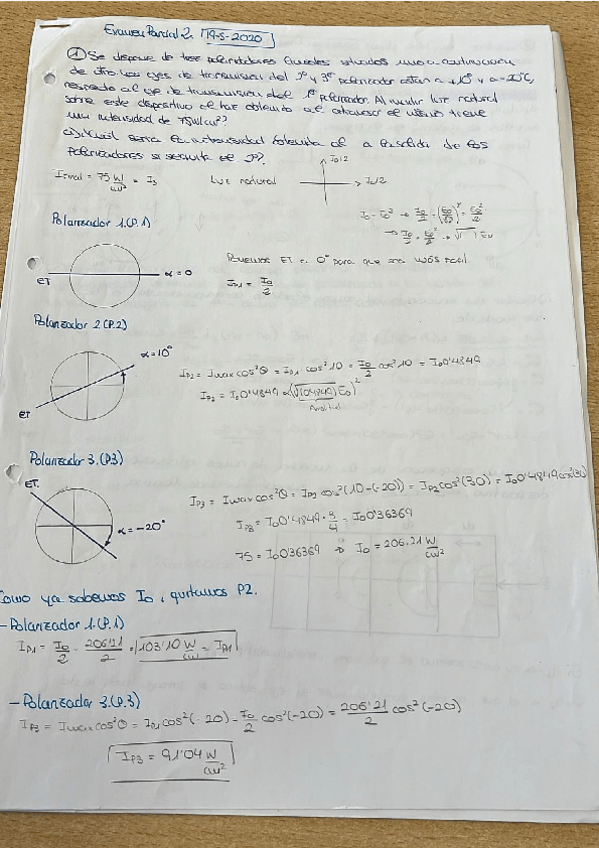 Examen Parcial 2. [19-5-2020]
① Se dispone de tres polarizadores lineales situados uno a continuación
de otro. Los ejes de transmisión del 2º y 3º polarizador están a +10º y a -20ºC,
respecto al eje de transmisión del 1º polarizador. Al incidir luz natural
sobre este dispositivo el haz obtenido al atravesar el último tiene
una intensidad de 75W/cm²?
a) ¿Cuál sería la intensidad obtenida a la salida de los
polarizadores si se quita el 2º?
Ifinal = 75 W/cm² = I3 Luz natural I0/2 I0/2
I0 = E0² → I0/2 = (E0/√2)² = E0²/2
Polarizador 1.(P.1)
ET α = 0
Ponemos ET a 0º para que sea más fácil
IP1 = I0/2
Polarizador 2(P.2)
α = 10º
ET
IP2 = Imax cos²θ = IP1 cos²10 = I0/2 cos²10 = I0 0'4849
IP2 = I0 0'4849 α (√(0'4849) E0)²
Amplitud
Polarizador 3.(P.3)
ET.
α = -20º
IP3 = Imax cos²θ = IP2 cos²(10-(-20)) = IP2 cos²(30) = I0 0'4849 cos²(30)
IP3 = I0 0'4849 · 3/4 = I0 0'36369
75 = I0 0'36369 ⇒ I0 = 206.21 W/cm²
Como ya sabemos I0, quitamos P2.
- Polarizador 1.(P.1)
IP1 = I0/2 = 206'21/2 = 103'10 W/cm² = IP1
- Polarizador 3.(P.3)
IP3 = Imax cos²θ = IP1 cos²(-20) = I0/2 cos²(-20) = 206'21/2 cos²(-20)
IP3 = 91'04 W/cm²